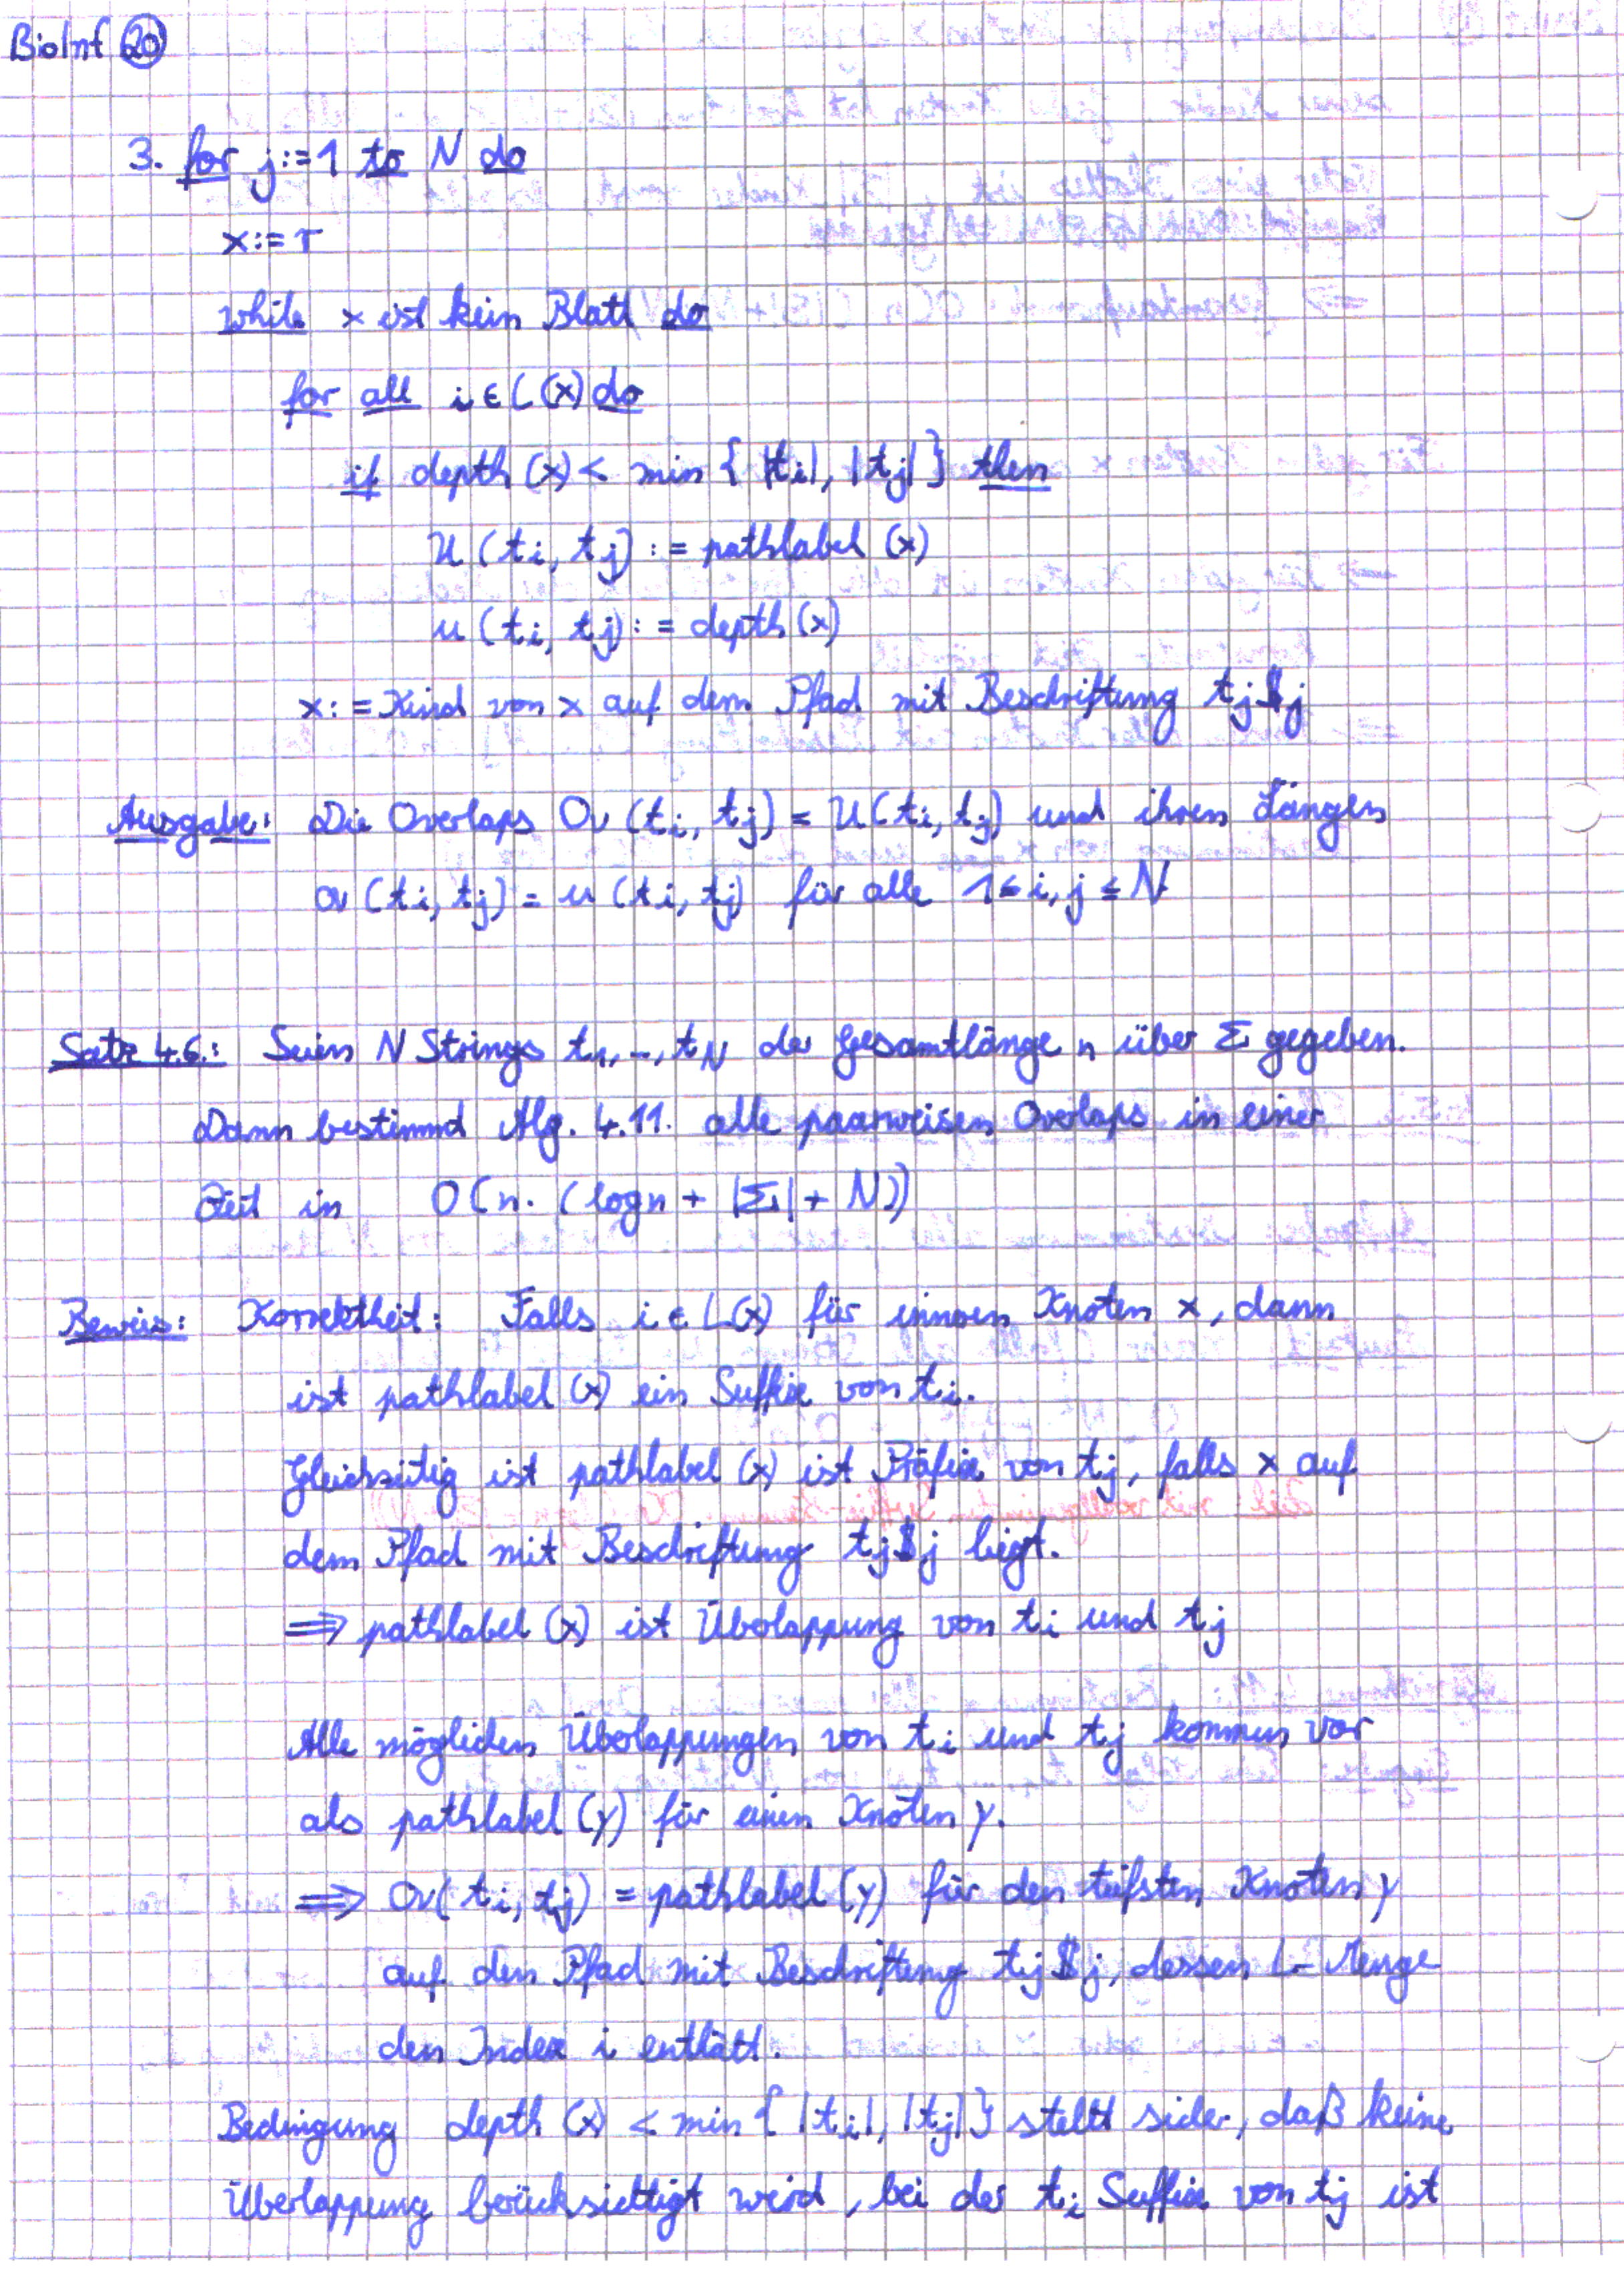 BioInf 20
3. for j:=1 to N do
x:=r
while x ist kein Blatt do
for all i ∈ L(x) do
if depth (x) < min { |ti|, |tj| } then
U (ti, tj) := pathlabel (x)
u (ti, tj) := depth (x)
x:= Kind von x auf dem Pfad mit Beschriftung tj$j
Ausgabe: Die Overlaps Ov (ti, tj) = U(ti, tj) und ihren Längen
ov (ti, tj) = u (ti, tj) für alle 1≤i, j ≤ N
Satz 4.6.: Seien N Strings t1,..., tN der Gesamtlänge n über Σ gegeben.
Dann bestimmd Alg. 4.11. alle paarweisen Overlaps in einer
Zeit in O(n·(log n + |Σ| + N))
Beweis: Korrektheit: Falls i ∈ L(x) für innern Knoten x, dann
ist pathlabel (x) ein Suffix von ti.
Gleichzeitig ist pathlabel (x) ist Präfix von tj, falls x auf
dem Pfad mit Beschriftung tj$j liegt.
⟹ pathlabel (x) ist Überlappung von ti und tj
Alle möglichen Überlappungen von ti und tj kommen vor
als pathlabel (y) für einen Knoten y.
⟹ Ov(ti, tj) = pathlabel (y) für den tiefsten Knoten y
auf den Pfad mit Beschriftung tj$j, dessen L-Menge
den Index i enthält.
Bedingung depth (x) < min { |ti|, |tj| } stellt sicher, daß keine
Überlappung berücksichtigt wird, bei der ti Suffix von tj ist